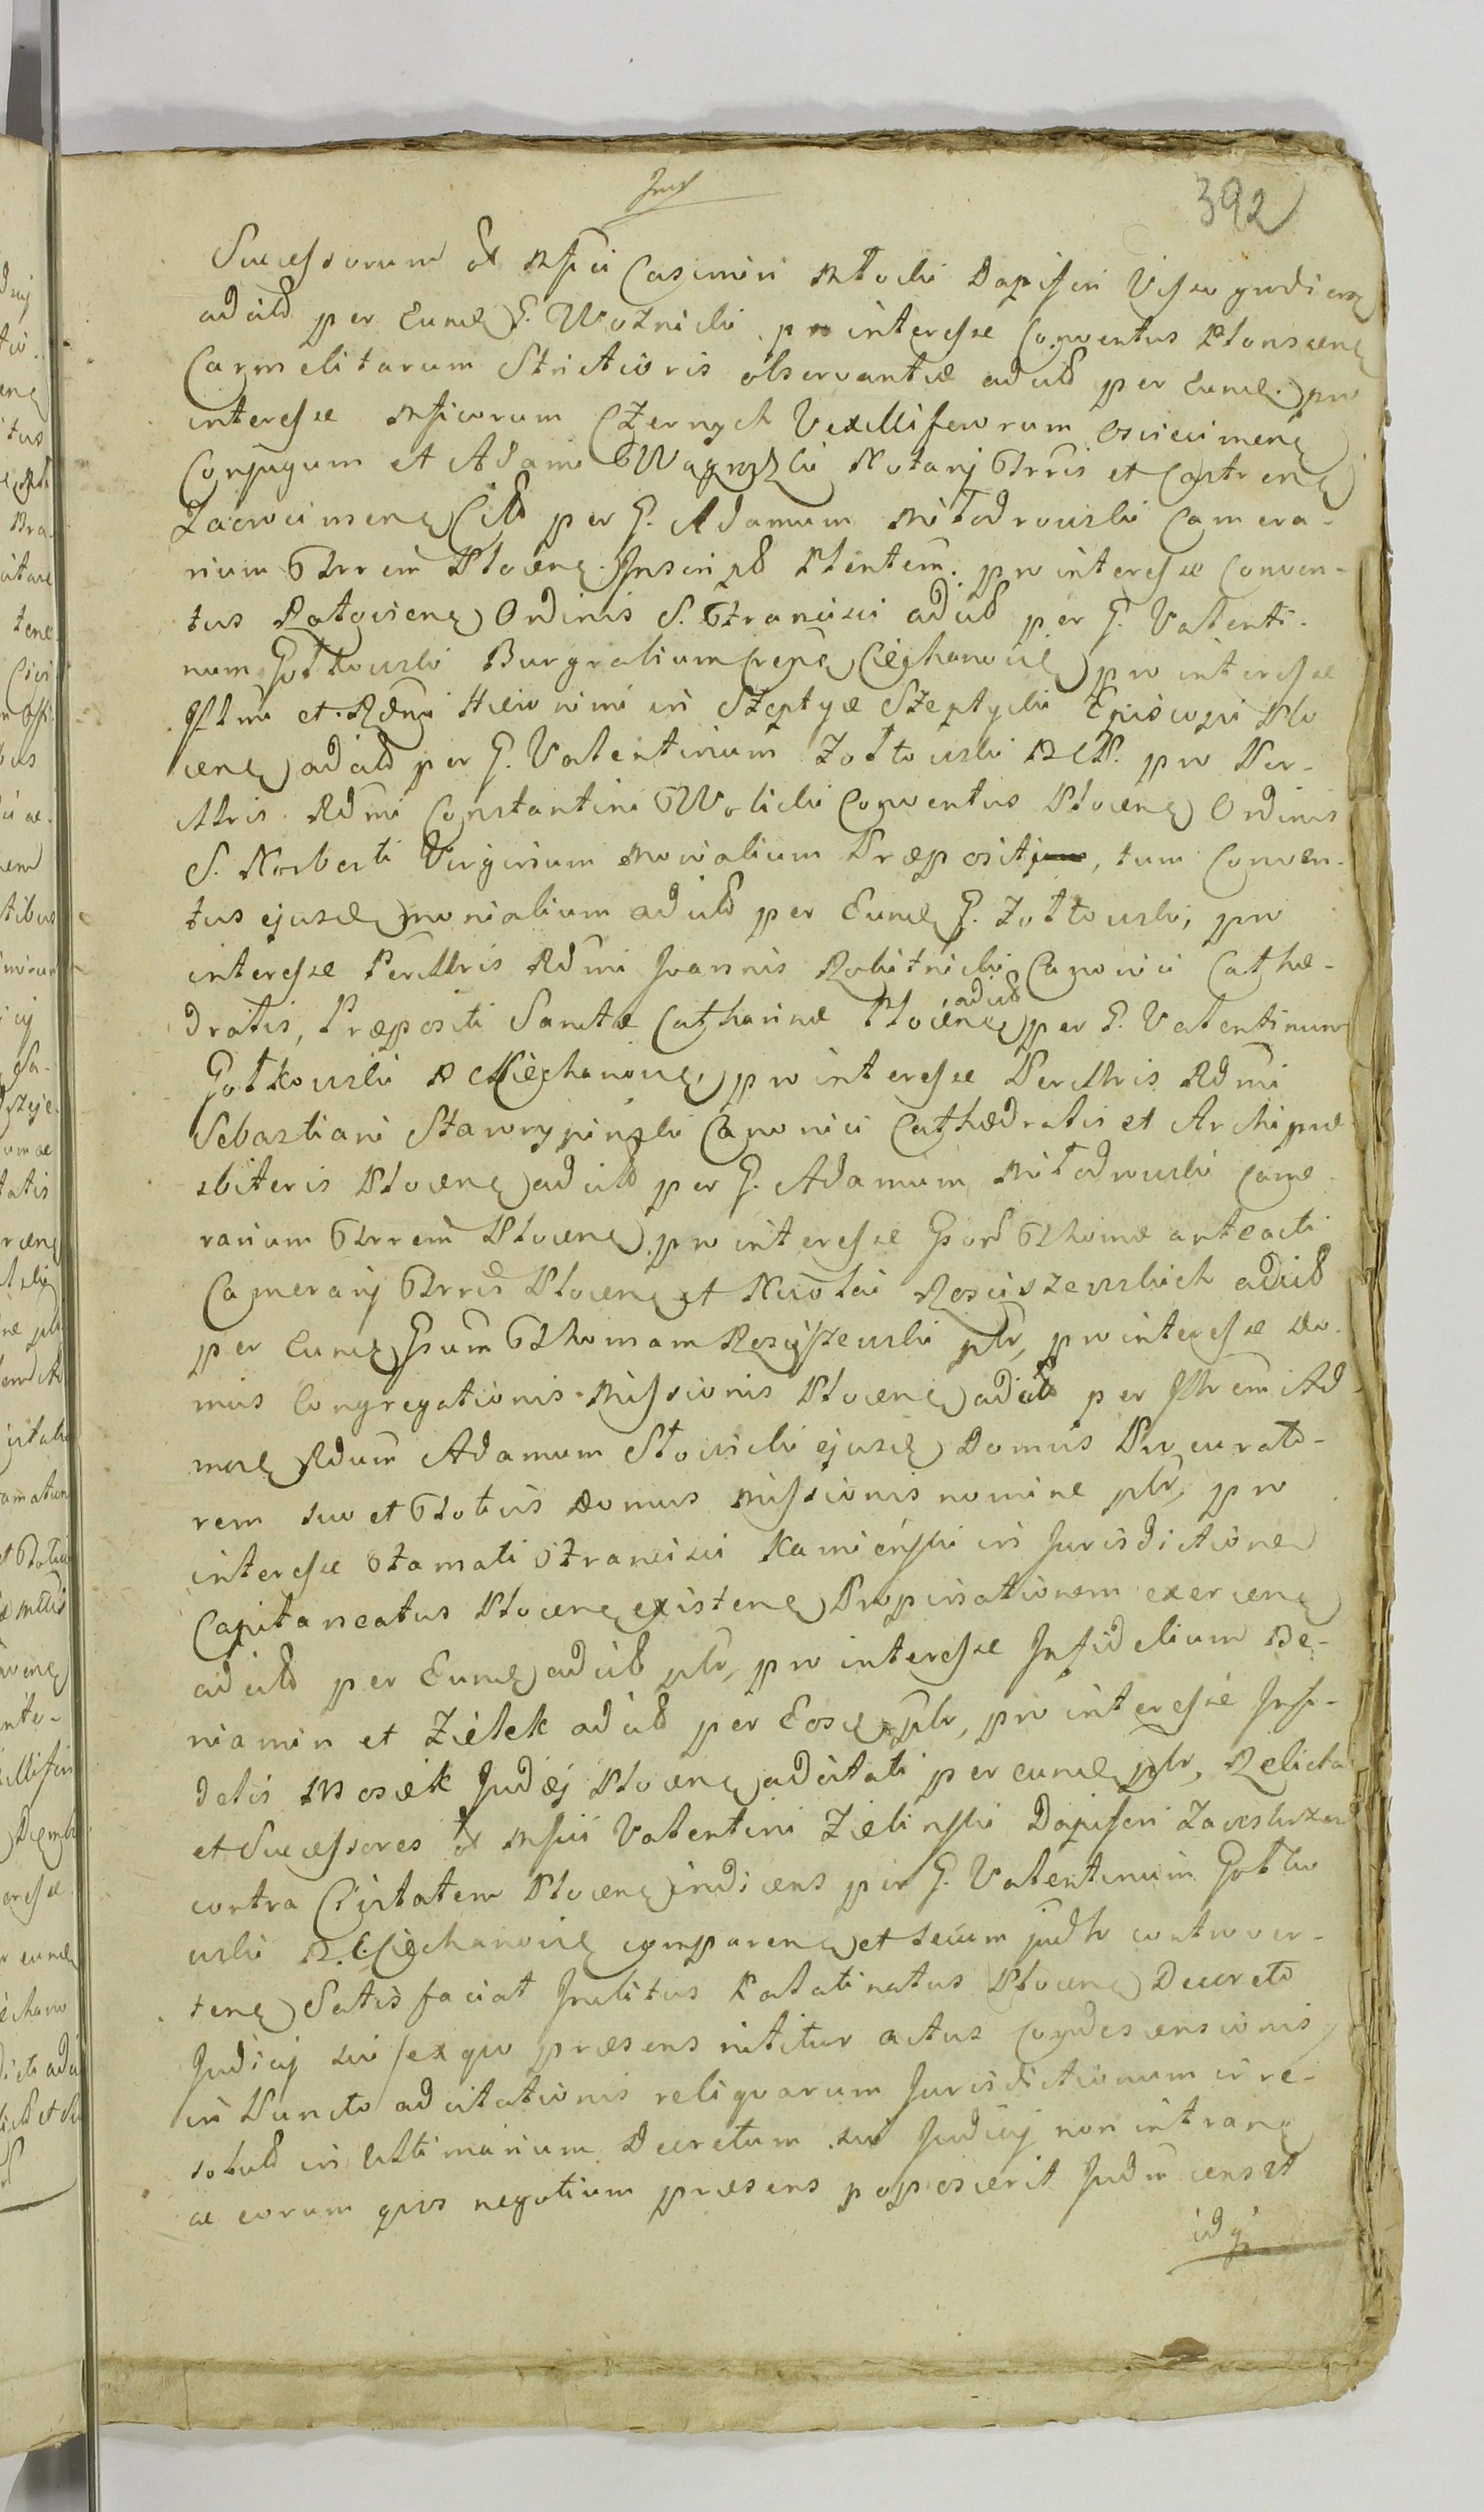 392
Successorum ol Mfici Casimiri Młocki Dapiferi Vissogrodien
adcitt per Eund G. Woznicki, pro interesse Conventus Płonscen
Carmelitarum Strictioris observantiæ adcitt per Eund. pro
interesse Mficorum Czernych Vexilliferorum Osviecimen
Conjugum et Adami Wagrodzki Notarij Trris et Castren
Zacrocimen Citt per G. Adamum Młodrowski Camera-
rium Trrem Plocen. Inscript Plenten. pro interesse Conven-
tus Ratovien Ordinis S. Francisci adcitt per G. Valenti-
num Gotkowski Burgrabium Cren Ciechanovie pro interesse
Illmi et Rdmi Hieronimi in Szeptyce Szeptycki Episcopi Plo
cen adcitt per G. Valentinum Zołtowski pro Per-
illris Rdmi Constantini Wolicki Conventus Plocen Ordinis
S. Norberti Virginum Monialium Præpositi, tum Conven-
tus ejusd monialium adcitt per Eund G. Zołtowski, pro
interesse Perillris Rdmi Joannis Robitnicki Canonici Cathe-
dralis, Præpositi Sanctæ Catharinæ Plocen adcitt per G. Valentinum
Gotkowski B C Ciechanovie, pro interesse Perillris Rdmi
Sebastiani Starorypinski Canonici Cathedralis et Archipre
sbiteris Plocen adcitt per G. Adamum Młodrowski Came
rarium Trrem Plocen pro interesse Gsord Thomæ anteacti
Camerarij Trris Plocen et Nicolai Rosciszewskich adcitt
per Eund Gsum Thomam Rosciszewski plr, pro interesse Do
mus Congregationis Missionis Plocen adcitt per Illrem Ad
mod Rdum Adamum Słowicki ejusd Domus Procurato-
rem suo et Totius Domus Missionis nomine plr, pro
interesse Famati Francisci Kamienski in Jurisdictione
Capitaneatus Plocen existen Propinationem exercen
adcitt per Eund adcitt plr, pro interesse Infidelium Be-
niamin et Zielek adcitt per Eosd plr, pro interesse Infi-
delis Mosiek Judæj Plocen adcitati per eund plr, Relicta
et Successores ol Mfici Valentini Zielinski Dapiferi Zawskrzen
contra Civitatem Plocen indicens per G. Valentinum Gotko
wski B. C. Ciechanovie comparen et secum judtr controver-
ten Satisfaciat Inclitus Palatinatus Plocen Decreto
Judicij sui /ex quo præsens nititur actus Condescensionis/
in Puncto adcitationis reliquarum Jurisdictionum irre-
solutt in Ultimarium Decretum sui Judicij non intran
ac eorum quos negotium præsens poposcerit Judm censet
idq